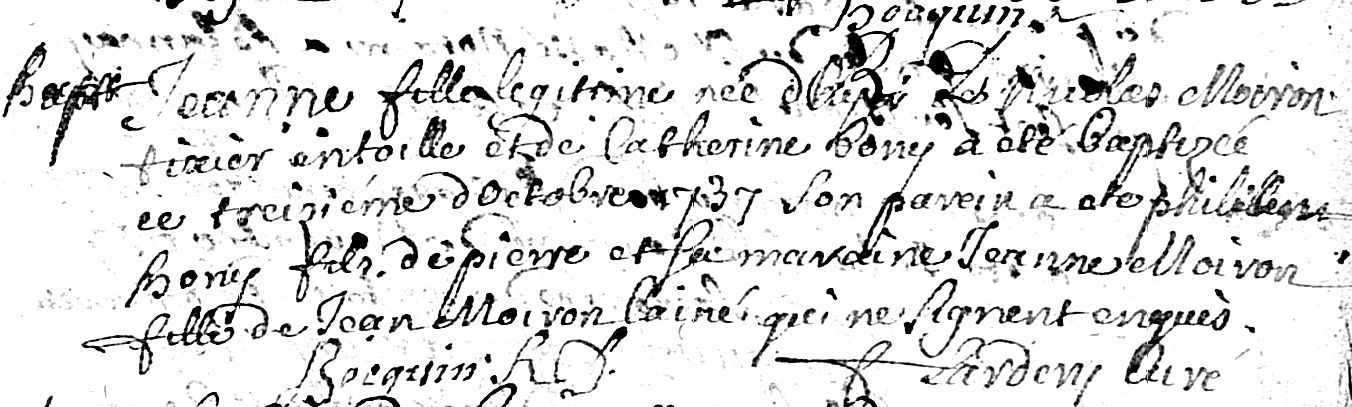 Bocquin
bapt Jeanne fille legitime née d'hier de Nicolas Moiron
tixier en toille et de Catherine bony a été baptizée
ce treiziéme d'Octobre 1737 son parein a ete philibert
bony fils de pierre et sa maraine Jeanne Moiron
fille de Jean Moiron l'ainé qui ne signent enquis.
Bocquin Lardery Curé